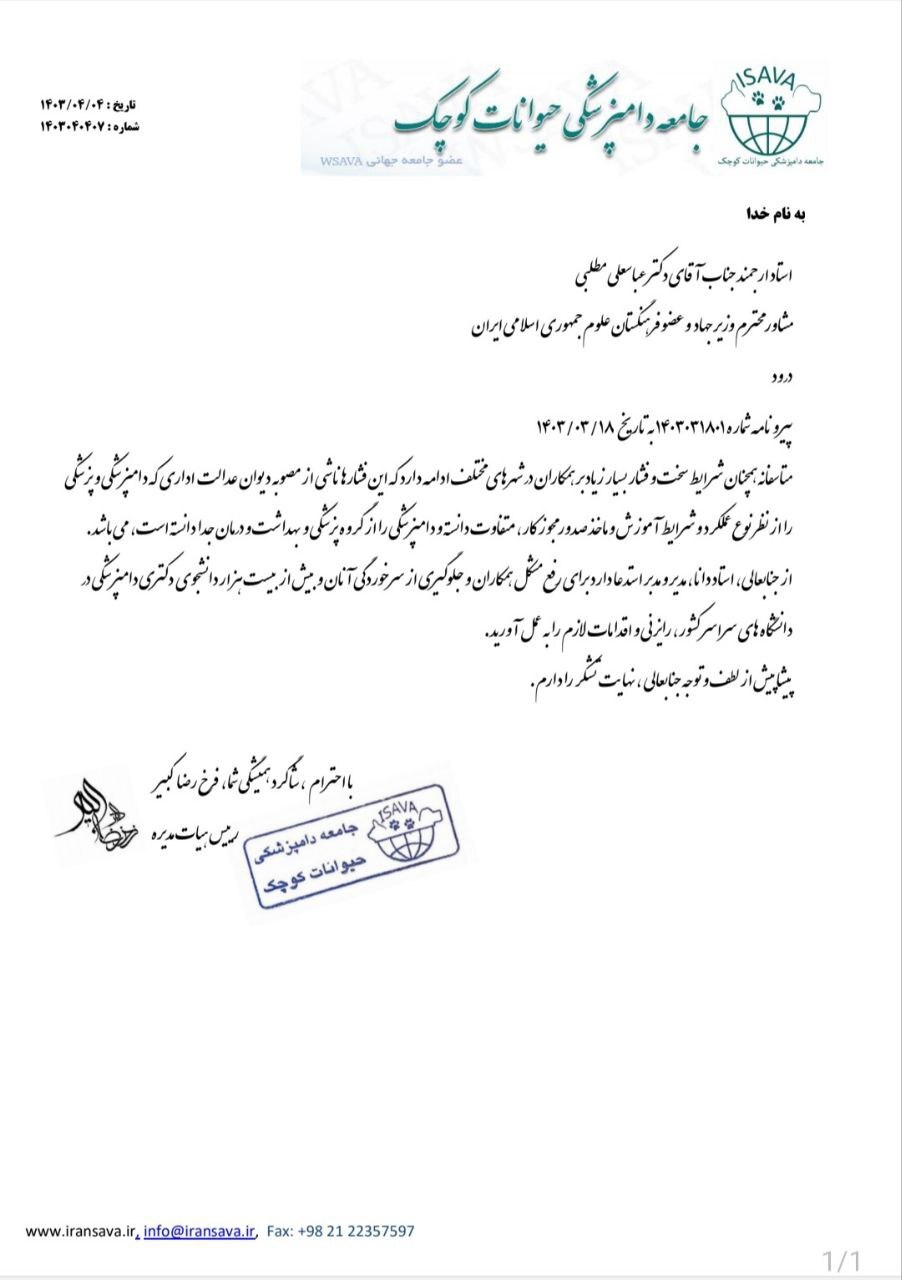 ISAVA
جامعه دامپزشکی حیوانات کوچک
جامعه دامپزشکی حیوانات کوچک
عضو جامعه جهانی WSAVA
تاریخ : ۱۴۰۳/۰۴/۰۴
شماره : ۱۴۰۳۰۴۰۴۰۷
به نام خدا
استاد ارجمند جناب آقای دکتر عباسعلی مطلبی
مشاور محترم وزیر جهاد و عضو فرهنگستان علوم جمهوری اسلامی ایران
درود
پیرو نامه شماره ۱۴۰۳۰۳۱۸۰۱ به تاریخ ۱۴۰۳/۰۳/۱۸
متاسفانه همچنان شرایط سخت و فشار بسیار زیاد بر همکاران در شهرهای مختلف ادامه دارد که این فشارها ناشی از مصوبه دیوان عدالت اداری که دامپزشکی و پزشکی
را از نظر نوع عملکرد و شرایط آموزش و ماخذ صدور مجوز کار، متفاوت دانسته و دامپزشکی را از گروه پزشکی و بهداشت و درمان جدا دانسته است، می باشد.
از جنابعالی، استاد دانا، مدیر و مدبر استدعا دارد برای رفع مشکل همکاران و جلوگیری از سرخوردگی آنان و بیش از بیست هزار دانشجوی دکتری دامپزشکی در
دانشگاه های سراسر کشور، رایزنی و اقدامات لازم را به عمل آورید.
پیشاپیش از لطف و توجه جنابعالی، نهایت تشکر را دارم.
با احترام، شاگرد همیشگی شما، فرخ رضا کبیر
رییس هیات مدیره
ISAVA
جامعه دامپزشکی
حیوانات کوچک
www.iransava.ir, info@iransava.ir, Fax: +98 21 22357597
1/1